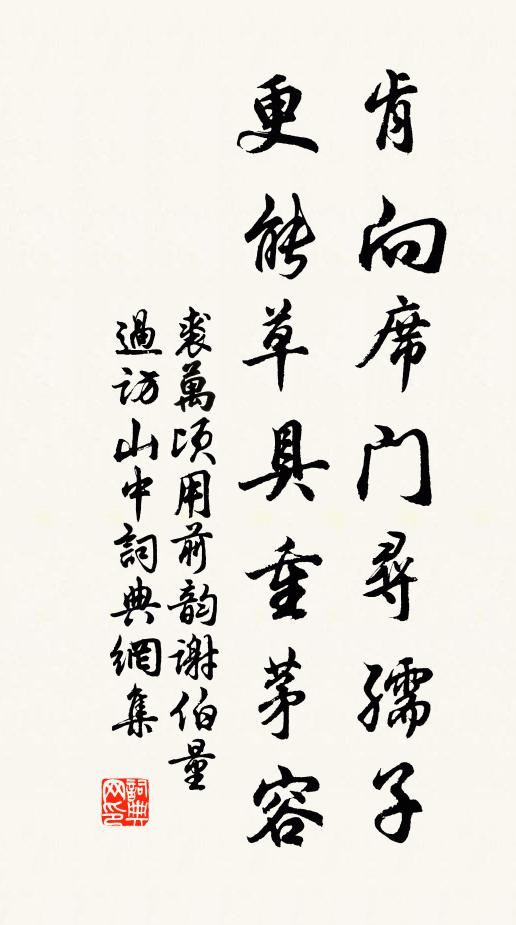 肯向席門尋孺子
更能草具重茅容
裘萬頃用前韵謝伯量
過訪山中詞典網集
詞典網印